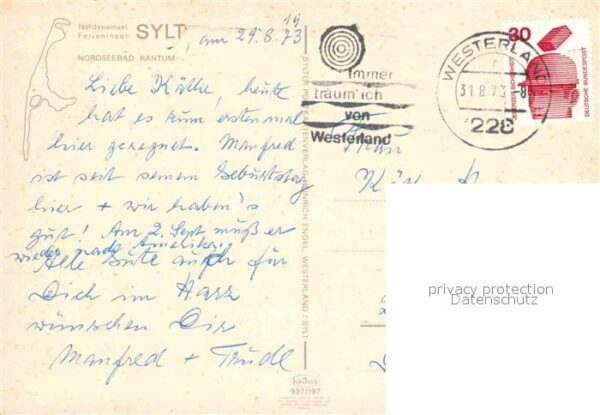 Nordseeinsel
Ferieninsel SYLT
NORDSEEBAD RANTUM
19
am 29.8.73
Liebe Käthe, heute
hat es zum erstenmal
hier geregnet. Manfred
ist seit seinem Geburtstag
hier + wir haben's
gut! Am 2. Sept muß er
wieder nach Amerika.
Alle Gute auch für
Dich im Harz
wünschen Dir
Manfred + Trudl
SYLTER POSTKARTENVERLAG HEINRICH ENGEL WESTERLAND / SYLT
937/197
Immer
träum' ich
von
Westerland
WESTERLAND
31.8.73-8
228
30
JEDERZEIT SICHERHEIT
DEUTSCHE BUNDESPOST
Frau
privacy protection
Datenschutz